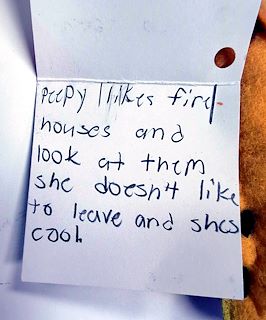 peepy llikes fire
houses and
look at them
she doesn't like
to leave and shes
cool